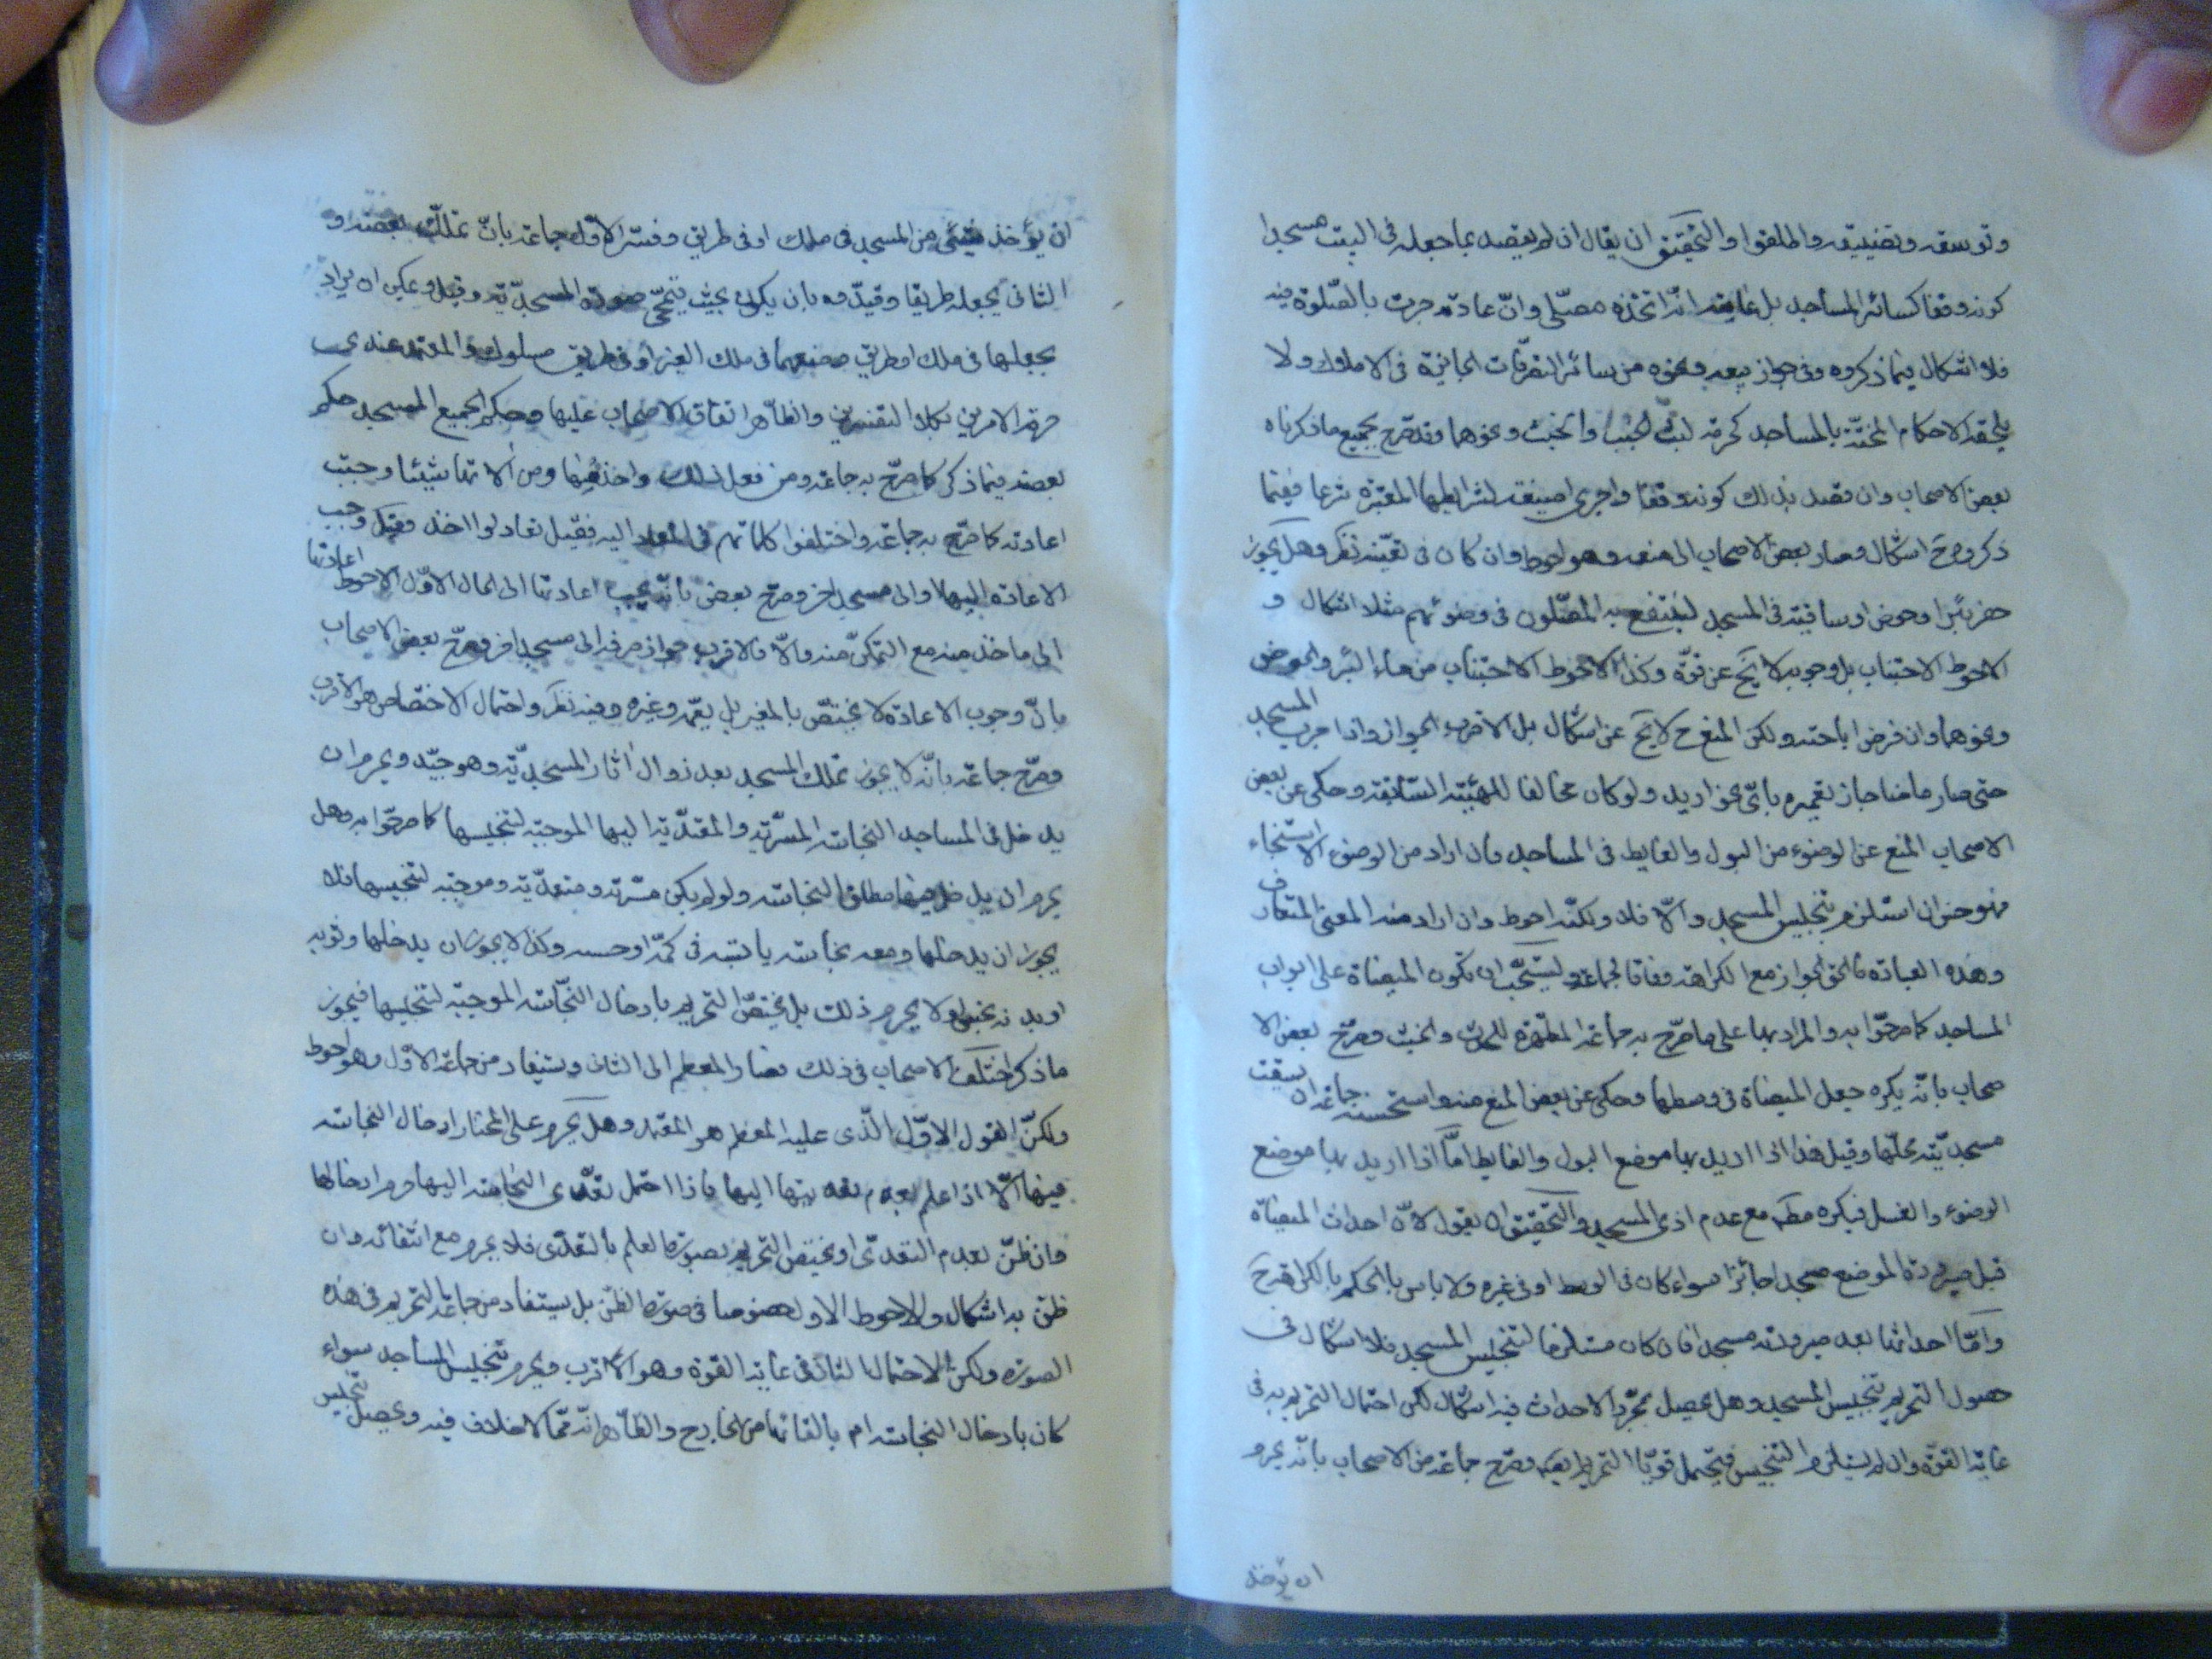 وتوسعته وتضييقه واطلقوا والتحقيق ان يقال ان لم يقصد بما جعله في البيت مسجدا
كونه وقفا كسائر المساجد بل غايته انه اتخذه مصلى وان عادته جرت بالصلوة فيه
فلا اشكال فيما ذكروه وفي جواز بيعه ونحوه من سائر التصرفات الجايزة في الاملاك ولا
يلحقه الاحكام المختصة بالمساجد كحرمة لبث الجنب والخبث ونحوهما وقد صرح بجميع ما ذكرناه
بعض الاصحاب وان قصد بذلك كونه وقفا واجرى صيغته بشرايطها المعتبرة شرعا ففيما
ذكروه ح اشكال وصار بعض الاصحاب الى منعه وهو احوط وان كان في تعينه نظر وهل يجوز
حفر بئر او حوض او ساقية في المسجد لينتفع به المصلون في وضوئهم مثلا اشكال و
الاحوط الاجتناب بل وجوبه لا يخ عن قوة وكذا الاحوط الاجتناب من ماء البئر والحوض
ونحوهما وان فرض اباحته ولكن المنع ح لا يخ عن اشكال بل الاقرب الجواز واذا خرب المسجد
حتى صار جاز تعميره باى نحو اريد ولو كان مخالفا للهيئة السابقة وحكى عن بعض
الاصحاب المنع عن الوضوء من البول والغايط في المساجد فان اراد من الوضوء الاستنجاء
فهو حسن ان استلزم تنجيس المسجد والا فلا ولكنه احوط وان اراد منه المعنى المتعارف
وهذه العبادة فالحق الجواز مع الكراهة وفاقا لجماعة ويستحب ان تكون الميضاة على ابواب
المساجد كما صرحوا به والمراد بها على ما صرح به جماعة المطهرة للحدث والخبث وصرح بعض الا
صحاب بانه يكره جعل الميضاة في وسطها وحكى عن بعض المنع منه واستحسنه جماعة ان سبقت
مسجدية محلها وقيل هذا اذا اريد بها موضع البول والغايط اما اذا اريد بها موضع
الوضوء والغسل فيكره مطم مع عدم اذى المسجد والتحقيق ان يقول لان احداث الميضاة
قبل صيرورة الموضع مسجدا جائز سواء كان في الوسط او في غيره ولا باس بالحكم بالكراهة ح
واما احداثها بعد صيرورته مسجدا فان كان مستلزما لتنجيس المسجد فلا اشكال في
حصول التحريم تنجيس المسجد وهل يحصل بمجرد الاحداث فيه اشكال لكن احتمال التحريم به في
غاية القوة وان لم يستلزم التنجيس فيحتمل قويا التحريم ايضا وصرح جماعة من الاصحاب بانه يحرم
ان يؤخذ
ان يؤخذ شيئى من المسجد في ملك او في طريق وفسر الاول جماعة بان تملك بعضه و
الثاني يجعله طريقا وقيدوه بان يكون بحيث يمحى صورة المسجدية وقيل ويمكن ان يراد
بجعلها في ملك او طريق وضعهما في ملك الغير او في طريق مسلوك والمعتمد عندي
حرمة الامرين بكلا التفسيرين والظاهر اتفاق الاصحاب عليها وحكم الجميع المسجد حكم
بعضه فيما ذكر كما صرح به جماعة ومن فعل ذلك واخذ منها ومن الاتها شيئا وجب
اعادته كما صرح به جماعة واختلفوا كلماتهم في المعاد اليه فقيل يعاد لو اخذ وقيل وجب
الاعادة اليها او الى مسجد اخر وصرح بعض بانه يجب اعادتها الى المال الاول الاحوط اعادتها
الى ما اخذ منه مع التمكن منه والا فالاقرب جواز صرفه الى مسجد اخر وصرح بعض الاصحاب
بان وجوب الاعادة لا يختص بالمغير بل يعمه وغيره وفيه نظر واحتمال الاختصاص هو الاقرب
وصرح جماعة بانه لا يجوز تملك المسجد بعد زوال اثار المسجدية وهو جيد ويحرم ان
يدخل في المساجد النجاسة المسرية والمتعدية اليها الموجبة لتنجيسها كما صرحوا به وهل
يحرم ان يدخل فيها مطلق النجاسة ولو لم يكن مسرية ومتعدية وموجبة لتنجيسها فلا
يجوز ان يدخلها ومعه نجاسة يابسة في كمه او جسده وكذا لا يجوز ان يدخلها وثوبه
او بدنه نجس او لا يحرم ذلك بل يختص التحريم بادخال النجاسة الموجبة لتنجيسها فيجوز
ما ذكر اختلف الاصحاب في ذلك فصار المعظم الى الثاني ويستفاد من جماعة الاول وهو احوط
ولكن القول الاول الذي عليه المعظم هو المعتمد وهل يحرم على المختار ادخال النجاسة
فيها الا اذا علم بعدم تعديتها اليها فاذا احتمل تعدى النجاسة اليها حرم ادخالها
وان ظن بعدم التعدى او يختص التحريم بصورة العلم بالتعدى فلا يحرم مع انتفائه وان
ظن به اشكال والاحوط الاول خصوصا في صورة الظن بل يستفاد من جماعة التحريم في هذه
الصورة ولكن الاحتمال الثاني في غاية القوة وهو الاقرب ويحرم تنجيس المساجد سواء
كان بادخال النجاسة ام بالقائها من الخارج والظاهر انه مما لا خلاف فيه ويحصل تنجيس